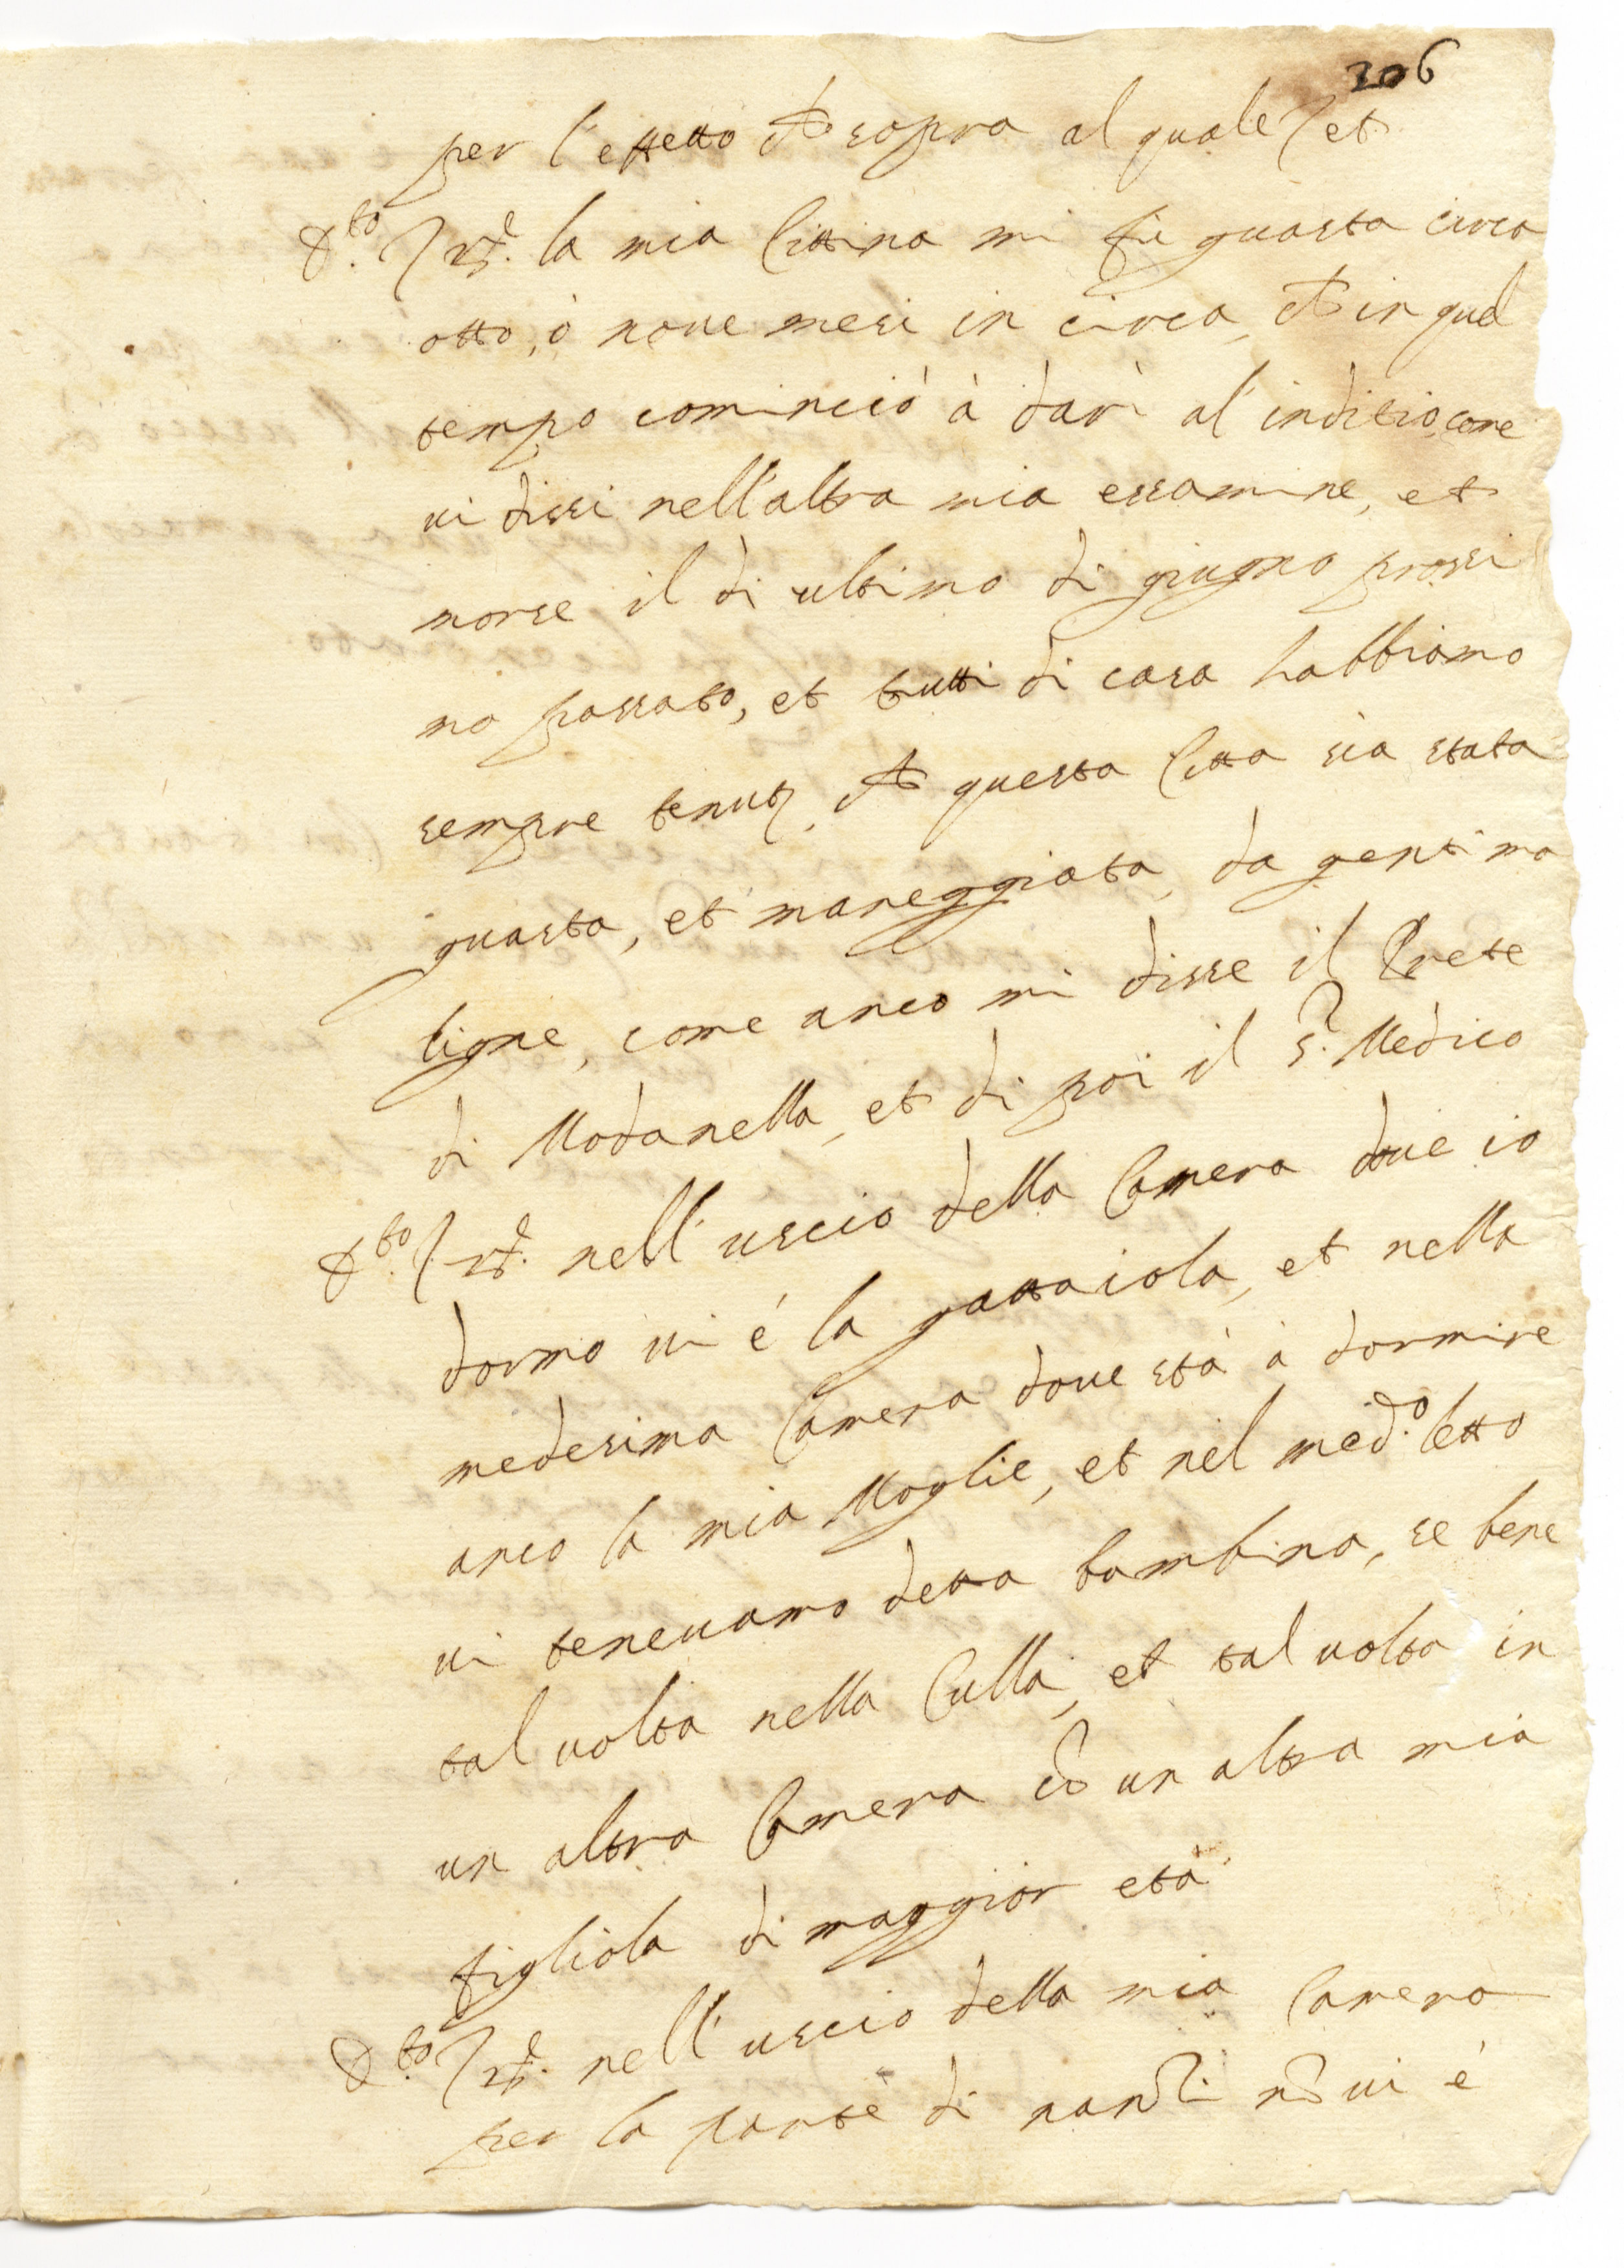 206
per l'effetto di sopra al quale et
D.to R.e la mia Cittina mi fù guasta circa
otto, ò noue mesi in circa, et in quel
tempo cominciò à dar' al'inditio, come
ui dissi nell'altra mia essamine, et
morse il di ultimo di giugno prossi
mo passato, et tutti di casa habbiamo
sempre tenuto, che questa Citta sia stata
guasta, et maneggiata, da genti ma
ligne, come anco mi disse il Prete
di Modanella, et di poi il S.r Medico
D.to R.e nell'uscio della Camera doue io
dormo ui é la gattaiola, et nella
medesima Camera doue stà à dormire
anco la mia Moglie, et nel med.o letto
ui teneuamo detta bambina, se bene
tal uolta nella Culla, et tal uolta in
un altra Camera cõ un altra mia
figliola di maggior età
D.to R.e nell'uscio della mia Camera
per la parte di nanzi nõ ui é